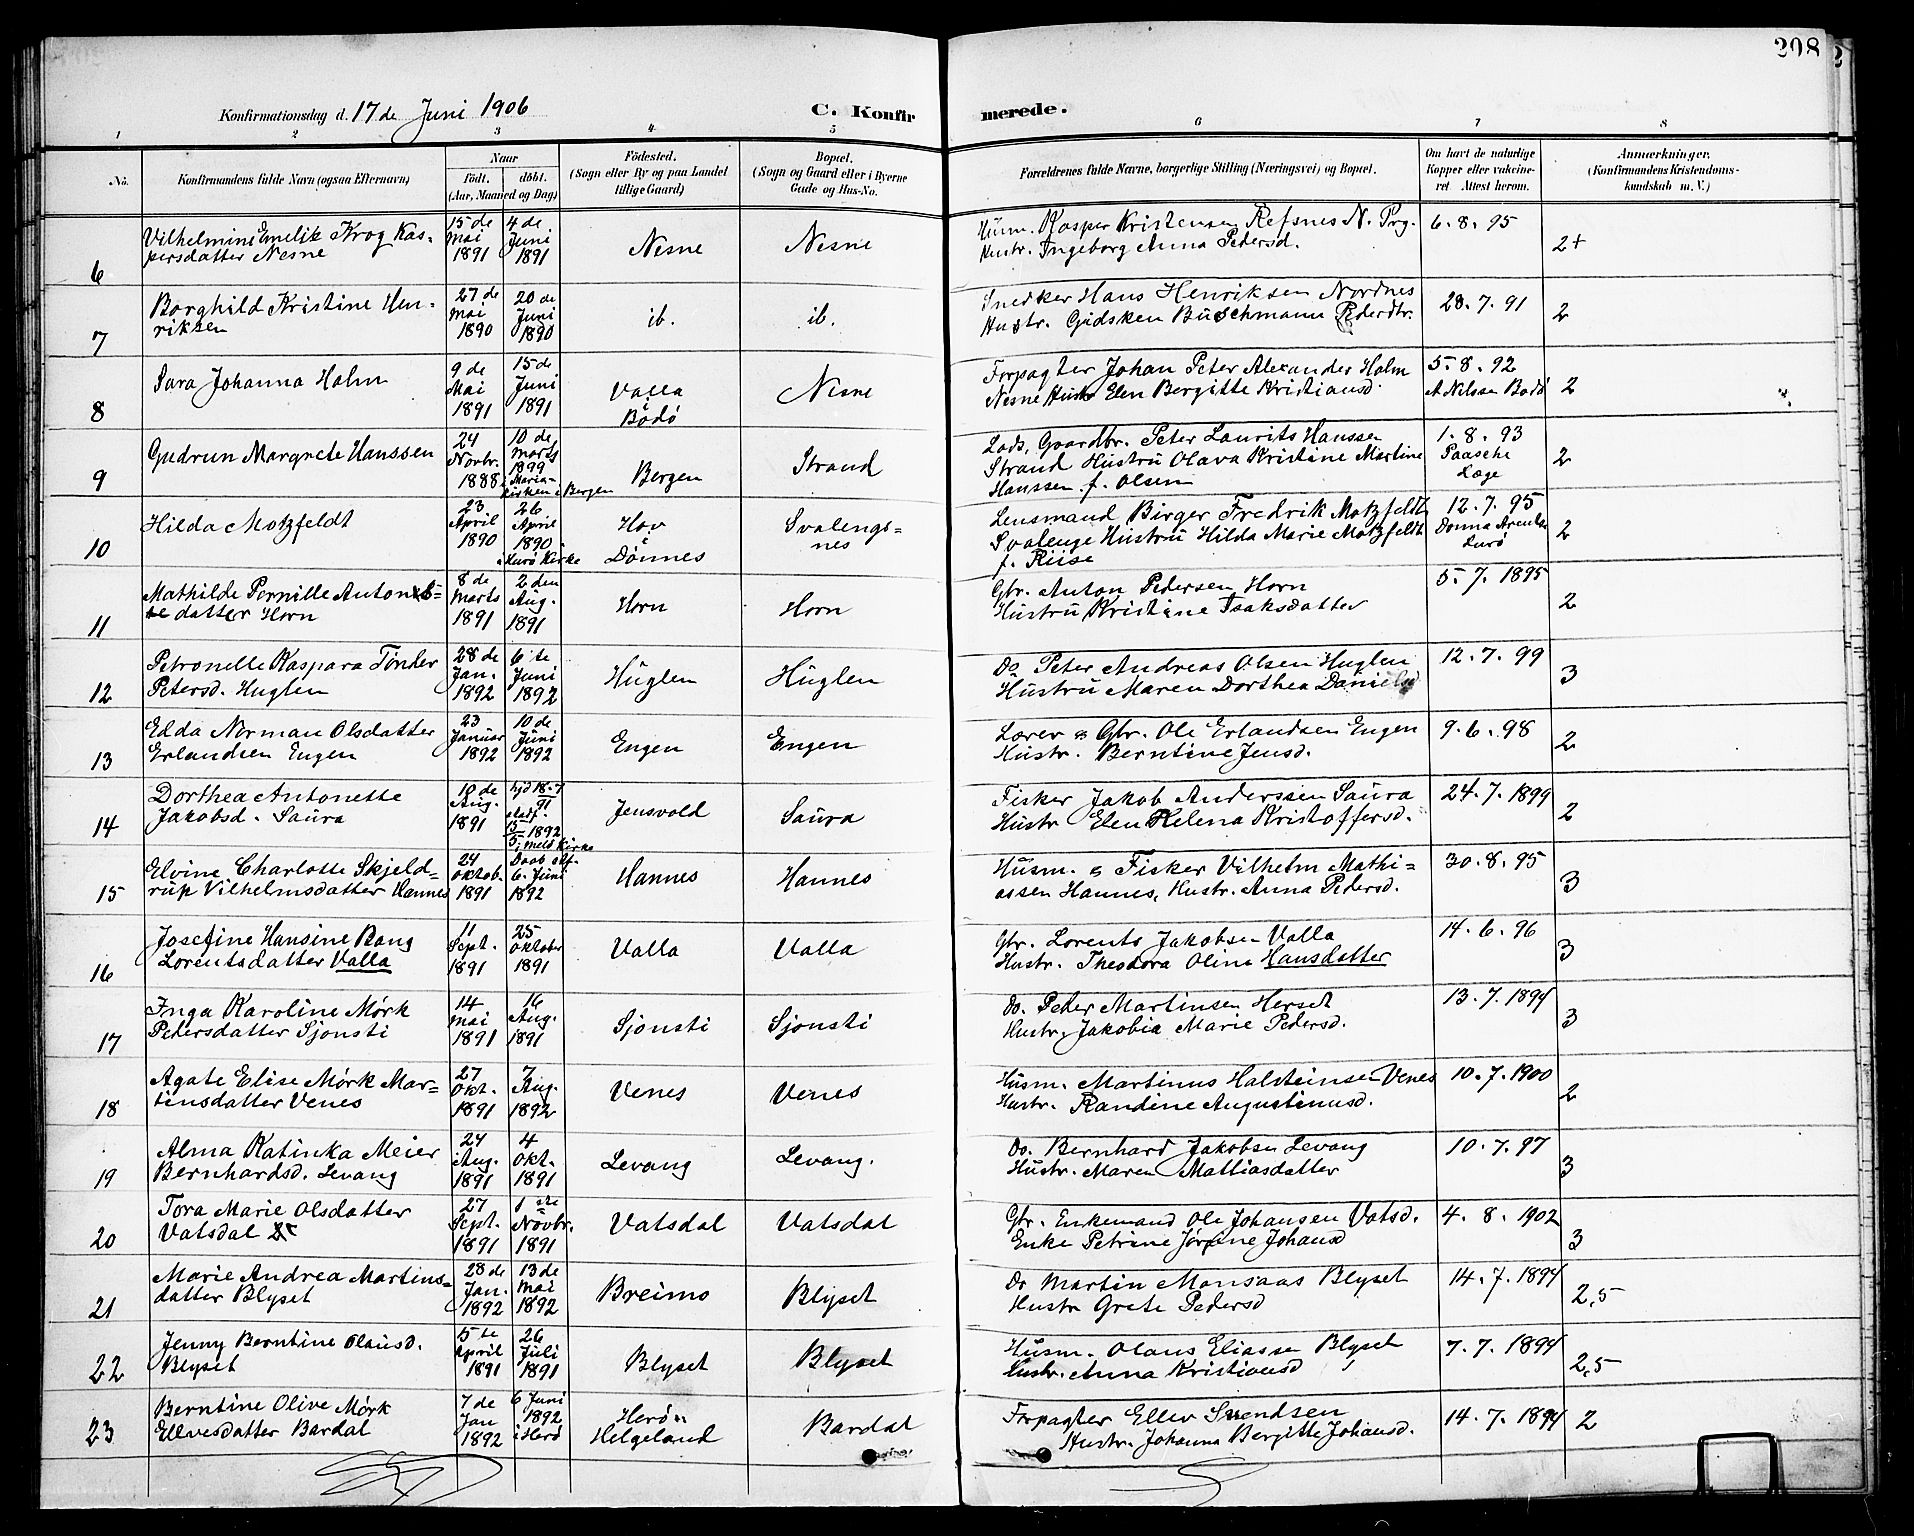 208
Konfirmationsdag d. 17de Juni 1906
C. Konfirmerede.
1 2 3 4 5 6 7 8
No.
Konfirmandens fulde Navn (ogsaa Efternavn)
Naar
født. døbt.
(Aar, Maaned og Dag)
Fødested.
(Sogn eller By og paa Landet
tillige Gaard)
Bopæl.
(Sogn og Gaard eller i Byerne
Gade og Hus-No.
Forældrenes fulde Navne, borgerlige Stilling (Næringsvei) og Bopæl.
Om havt de naturlige
Kopper eller vakcine-
ret Attest herom.
Anmærkninger.
(Konfirmandens Kristendoms-
kundskab m. V.)
6
Vilhelmine Emelie Krog Kas-
persdatter Nesne
15 de Mai 1891
4 de Juni 1891
Nesne
Nesne
Husm. Kasper Kristensen Refsnes N. Prg.
Hustr. Ingeborg Anna Pedersd.
6.8.95
2+
7
Borghild Kristine Hen-
riksen
27 de Mai 1890
20 de Juni 1890
ib.
ib.
Snedker Hans Henriksen Nordnes
Hustr. Gidsken Buschmann Pederdtr.
28.7.91
2
8
Sara Johanna Holm
9 de Mai 1891
15 de Juni 1891
Valla
i
Bodø
Nesne
Forpagter Johan Peter Alexander Holm
Nesne Hustr Elen Bergitte Kristiansd.
5.8.92
A Nilssen Bodø
2
9
Gudrun Margrete Hanssen
24 Novbr. 1888
10 de Marts 1899
i Maria-
kirken i Bergen
Bergen
Strand
Lods, Gaardbr. Peter Laurits Hanssen
Strand Hustru Olava Kristine Martine
Hanssen f. Olsen
1.8.93
Paasche
Læge
2
10
Hilda Motzfeldt
23 April 1890
26 April 1890
i Kirke
Hov
i
Dønnes
Svalengs=
nes
Lensmand Birger Fredrik Motzfeldt
Svalenge Hustru Hilda Marie Motzfeldt
f. Riise
12.7.95
2
11
Mathilde Pernille Anton
datter Horn
8 de Marts 1891
2 den Aug. 1891
Horn
Horn
Gbr. Anton Pedersen Horn
Hustru Kristine Isaksdatter
5.7.1895
2
12
Petronelle Kaspara Tønder
Petersd. Huglen
28 de Jan. 1892
6 te Juni 1892
Huglen
Huglen
Do Peter Andreas Olsen Huglen
Hustru Maren Dorthea Danielsd
12.7.99
3
13
Edda Norman Olsdatter
Erlandsen Engen
23 Januar 1892
10 de Juni 1892
Engen
Engen
Lærer & Gbr. Ole Erlandsen Engen
Hustr. Berntine Jensd.
9.6.98
2
14
Dorthea Antonette
Jakobsd. Saura
10 de Aug. 1891
hjd 18-9
91
stadf.
1892
Kirke
Jensvold
Saura
Fisker Jakob Anderssen Saura
Hustr Elen Helena Kristoffersd.
24.7.1899
2
15
Elvine Charlotte Skjeld=
rup Vilhelmsdatter Hannes
24 Oktob. 1891
Daab stf.
6. Juni 1892
Hannes
Hannes
Husm. & Fisker Vilhelm Mathi=
assen Hannes, Hustr. Anna Pedersd.
30.8.95
3
16
Josefine Hansine Bang
Lorentsdatter Valla
11 Sept. 1891
25 Oktober 1891
Valla
Valla
Gbr. Lorents Jakobsen Valla
Hustr. Theodora Oline Hansdatter
14.6.96
3
17
Inga Karoline Mørk
Pedersdatter Sjonsti
14 Mai 1891
16 Aug. 1891
Sjonsti
Sjonsti
Do. Peter Martinsen Herset
Hustr. Jakobia Marie Pedersd.
13.7.1894
3
18
Agate Elise Mørk Mar=
tinsdatter Venes
27 Okt. 1891
7 Aug. 1892
Venes
Venes
Husm. Martinus Halsteinsen Venes
Hustr. Randine Augustinusd.
10.7.1900
2
19
Alma Katinka Meier
Bernhardsd. Levang
24 Aug. 1891
4 Okt. 1891
Levang
Levang.
Do. Bernhard Jakobsen Levang
Hustr. Maren Mathiasdatter
10.7.97
3
20
Tora Marie Olsdatter
Vatsdal
27 Sept. 1891
1 ste Novbr. 1891
Vatsdal
Vatsdal
Gbr. Enkemand Ole Johansen Vatsd.
Enke Petrine Jørgine Johansd
4.8.1902
3
21
Marie Andrea Martins=
datter Blyset
28 de Jan. 1892
13 de Mai 1892
Breimo
Blyset
Do Martin Monsaas Blyset
Hustr Grete Pedersd
14.7.1894
2,5
22
Jenny Berntine Olausd.
Blyset
5 te April 1891
26 Juli 1891
Blyset
Blyset
Husm. Olaus Eliassen Blyset
Hustr. Anna Kristiansd
7.7.1894
2,5
23
Berntine Olive Mørk
Ellvesdatter Bardal
7 de Jan 1892
6 Juni 1892
i Herø
Herø
Helgeland
Bardal
Forpagter Ellev Svendsen
Hustr. Johanna Bergitte Johansd.
14.7.1894
2